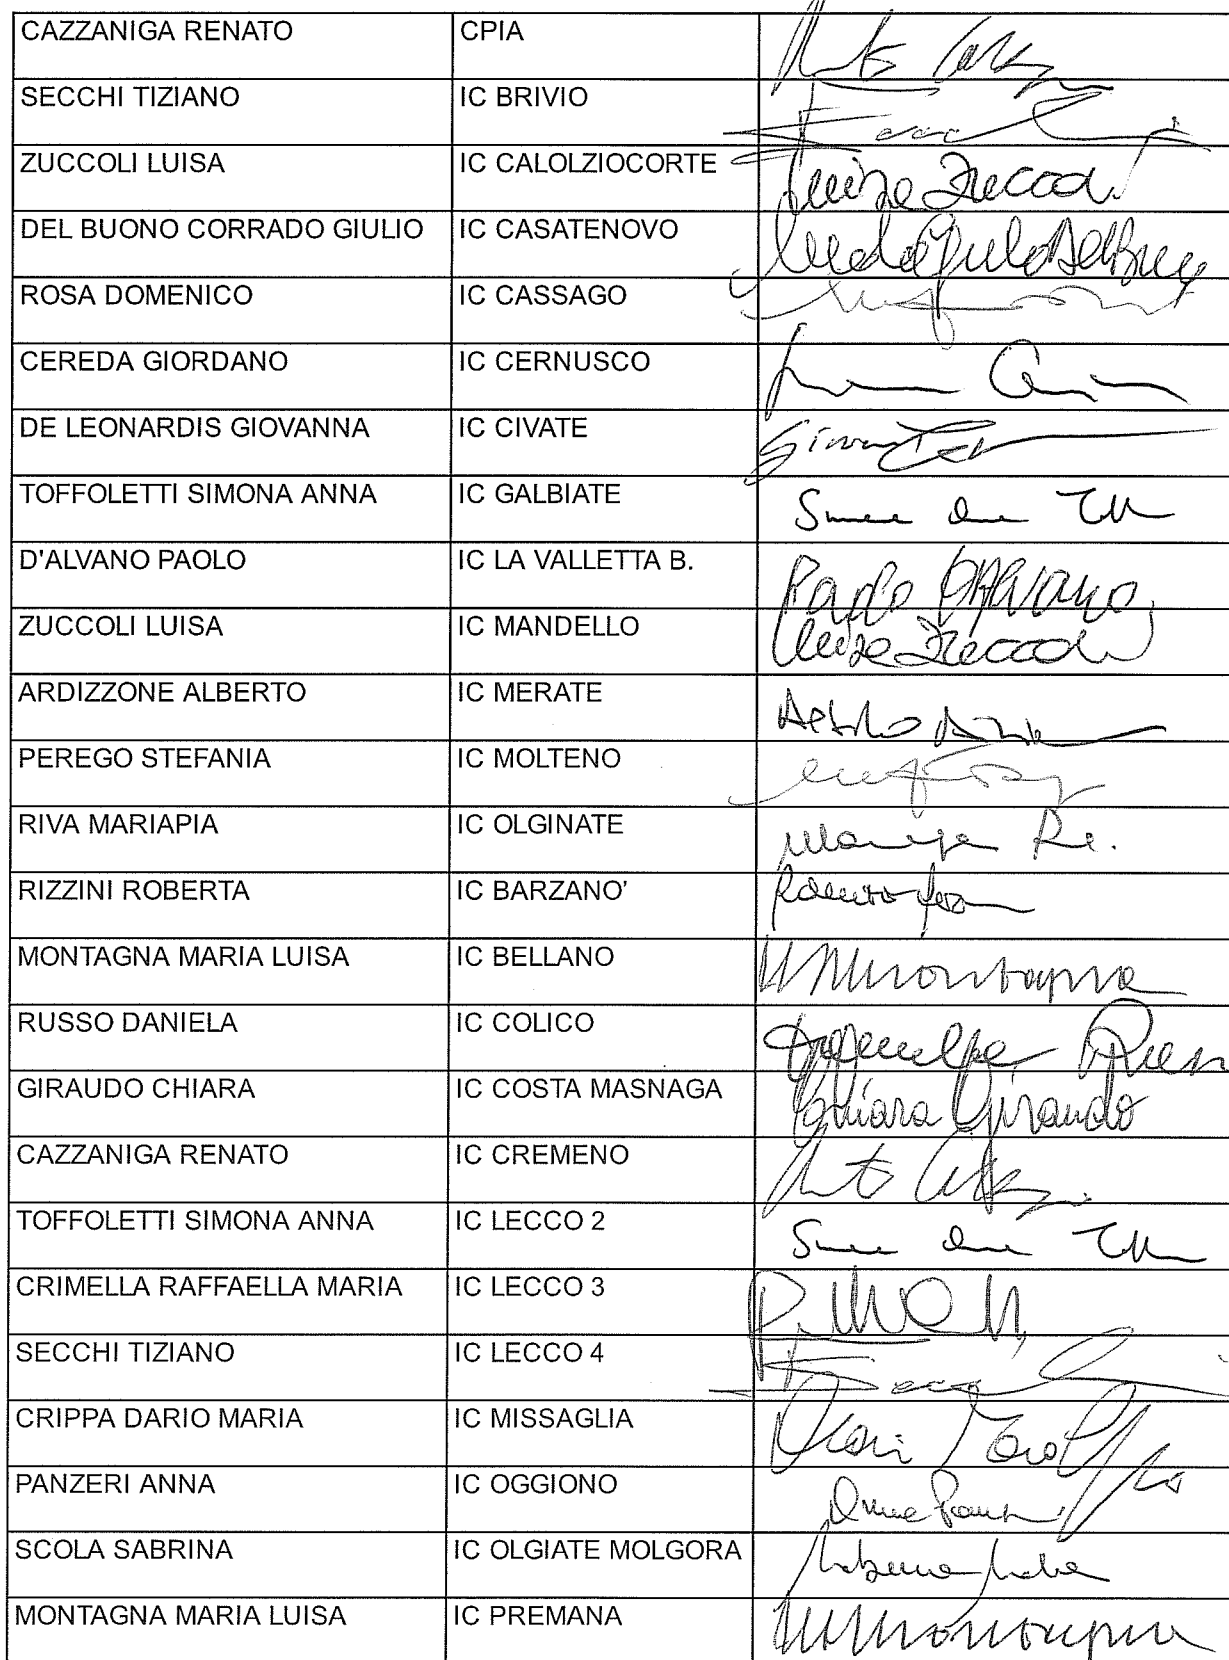 CAZZANIGA RENATO CPIA
SECCHI TIZIANO IC BRIVIO
ZUCCOLI LUISA IC CALOLZIOCORTE Luisa Zuccoli
DEL BUONO CORRADO GIULIO IC CASATENOVO
ROSA DOMENICO IC CASSAGO
CEREDA GIORDANO IC CERNUSCO
DE LEONARDIS GIOVANNA IC CIVATE
TOFFOLETTI SIMONA ANNA IC GALBIATE
D'ALVANO PAOLO IC LA VALLETTA B. Paolo D'Alvano
ZUCCOLI LUISA IC MANDELLO Luisa Zuccoli
ARDIZZONE ALBERTO IC MERATE
PEREGO STEFANIA IC MOLTENO
RIVA MARIAPIA IC OLGINATE
RIZZINI ROBERTA IC BARZANO'
MONTAGNA MARIA LUISA IC BELLANO MMontagna
RUSSO DANIELA IC COLICO
GIRAUDO CHIARA IC COSTA MASNAGA Chiara Giraudo
CAZZANIGA RENATO IC CREMENO
TOFFOLETTI SIMONA ANNA IC LECCO 2
CRIMELLA RAFFAELLA MARIA IC LECCO 3
SECCHI TIZIANO IC LECCO 4
CRIPPA DARIO MARIA IC MISSAGLIA
PANZERI ANNA IC OGGIONO
SCOLA SABRINA IC OLGIATE MOLGORA
MONTAGNA MARIA LUISA IC PREMANA